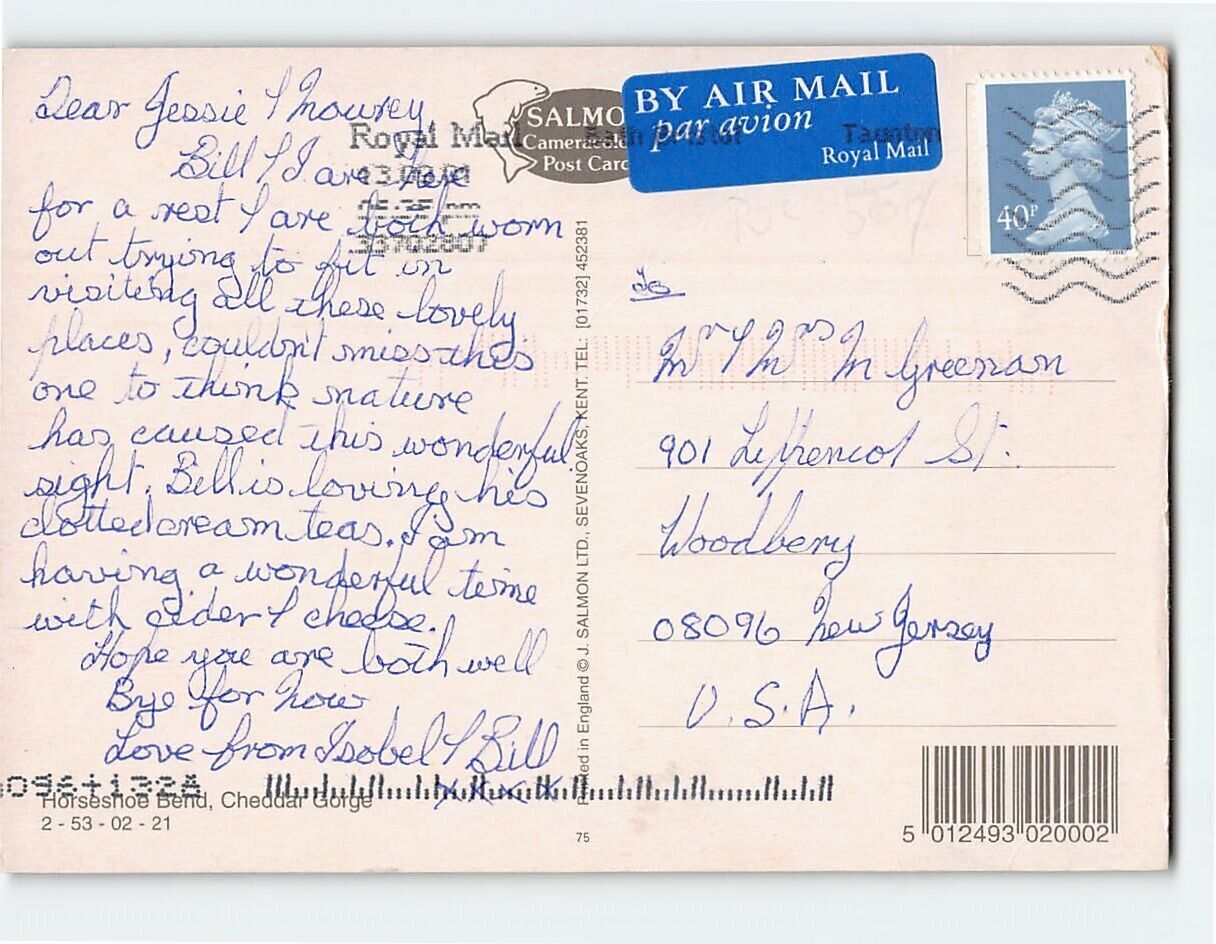 Dear Jessie &
Bill & I are here
for a rest & are both worn
out trying to fit in
visiting all these lovely
places, couldn't miss this
one to think nature
has caused this wonderful
sight. Bill is loving his
clotted cream teas. I am
having a wonderful time
with cider & cheese.
Hope you are both well
Bye for now
Love from Isobel & Bill
x x x x
Horseshoe Bend, Cheddar Gorge
2 - 53 - 02 - 21
Royal Mail
SALMO
Post Card
Printed in England © J. SALMON LTD., SEVENOAKS, KENT. TEL: [01732] 452381
75
BY AIR MAIL
par avion
Royal Mail
Bath Bristol Taunton
40P
To
Mr & Mrs M Greenan
901 St.
Woodbery
08096 New Jersey
U.S.A.
5 012493 020002